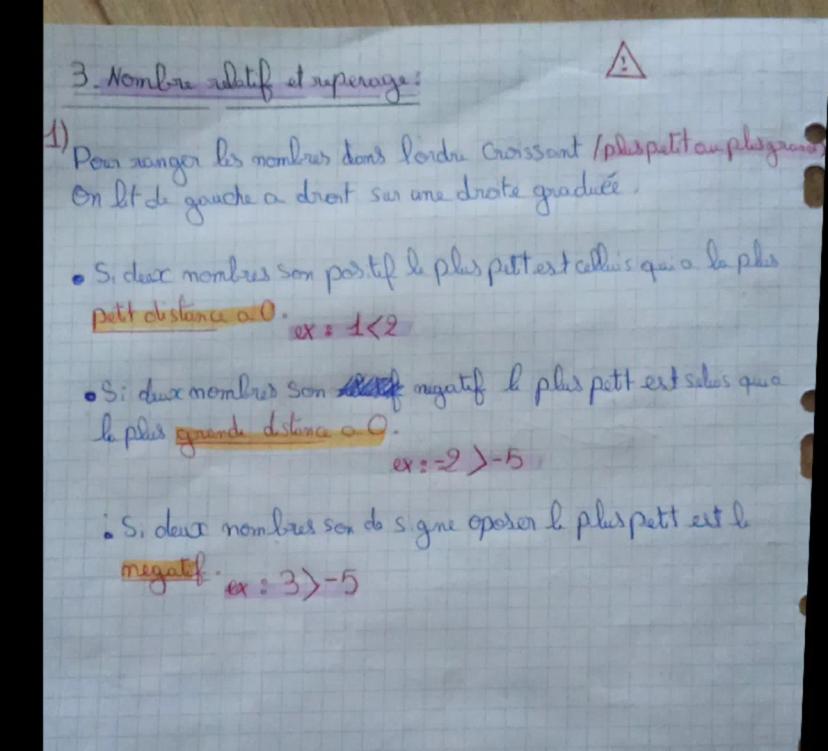 3. Nombre relatif et reperage :
!
1)
Pour ranger les nombres dans l'ordre Croissant /plus petit au plus grand)
On lit de gauche a droit sur une droite graduée.
• Si deux nombres son positif le plus petit est celluis qui a la plus
petit distance a 0.
ex : 1<2
• Si deux nombres son negatif le plus petit est selus qui a
le plus grande distance a 0.
ex : -2 > -5
• Si deux nombres son de signe oposer le plus petit est le
negatif.
ex : 3 > -5